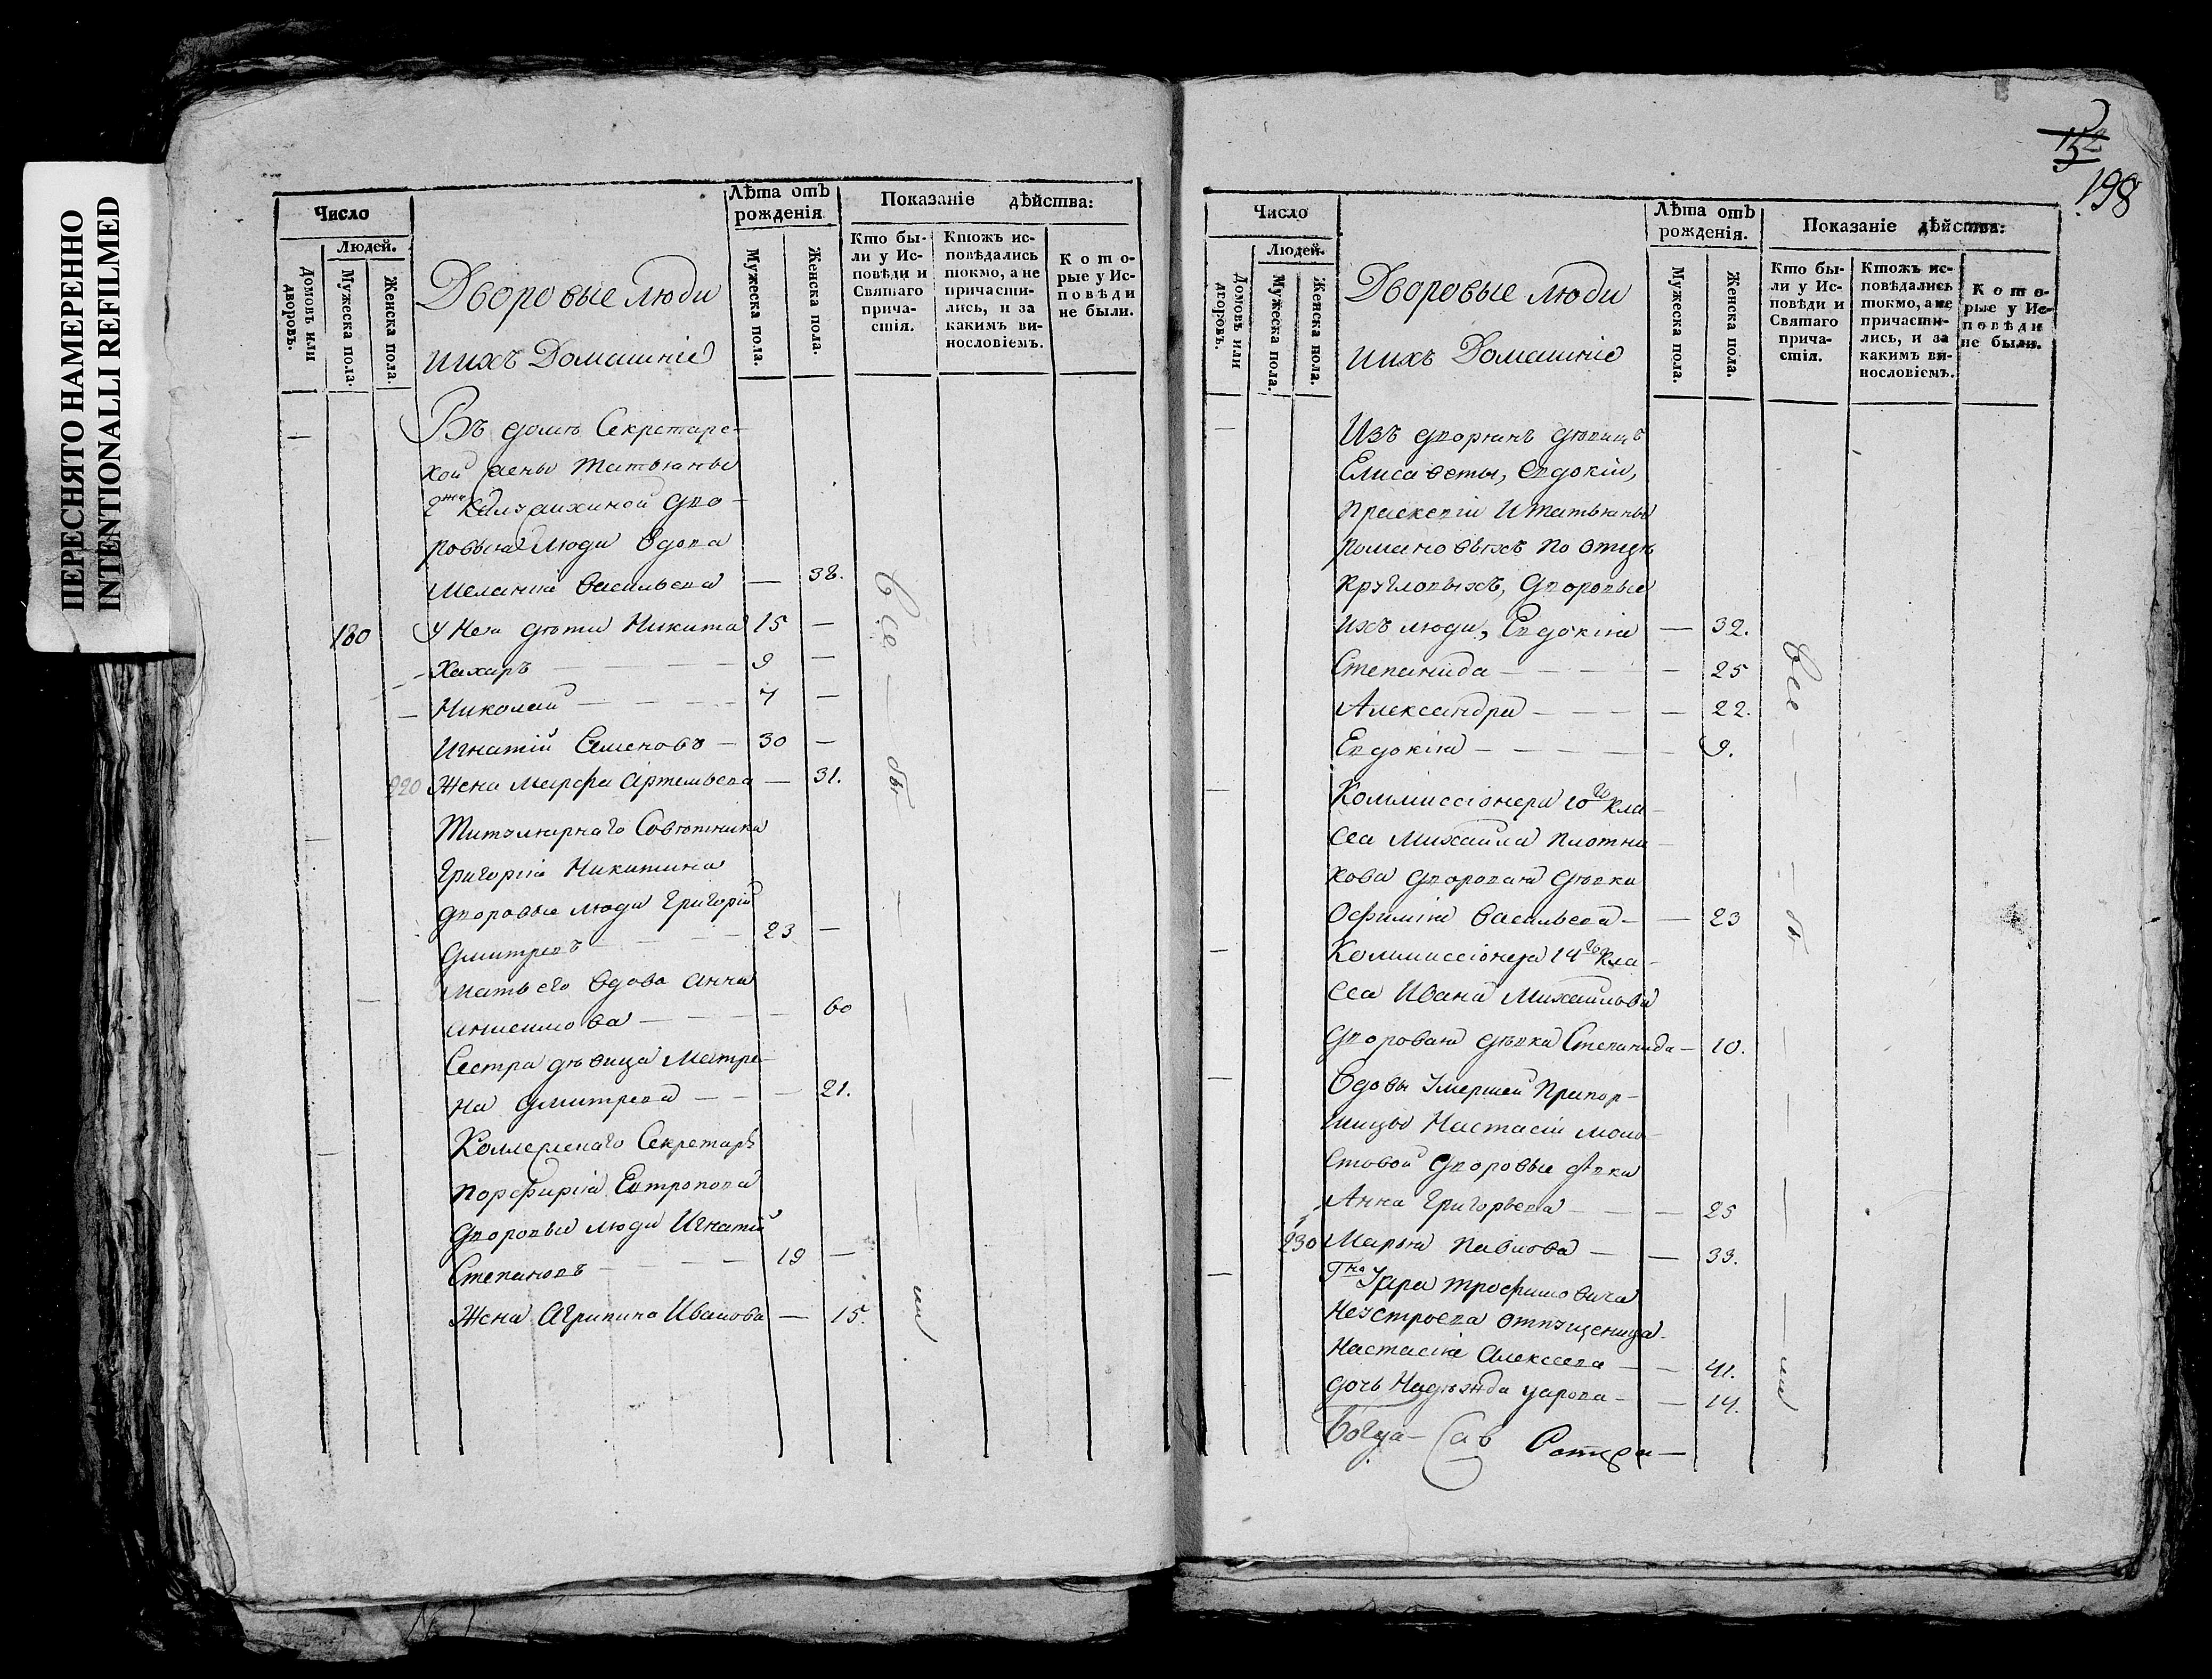 ПЕРЕСНЯТО НАМЕРЕННО
INTENTIONALLI REFILMED
Число
Людей.
Домовъ или дворовъ.
Мужеска пола.
Женска пола.
Дворовые люди
иихъ Домашніе
Лѣта отъ рожденія
Мужеска пола.
Женска пола.
Показаніе дѣйства:
Кто бы-
ли у Ис-
повѣди и
Святаго
прича-
стія.
Ктожъ ис-
повѣдались
токмо, а не
причасти-
лись, и за
какимъ ви-
нословіемъ.
Кото-
рые у Ис-
повѣди
не были.
Въ домѣ Секретарс-
кой жены Татьяны
дво-
ровыя люди вдова
Меланія Васильева — 38.
180 У Нея дѣти Никита 15 —
Хахаръ 9 —
Николай 7 —
Игнатій Семеновъ — 30 —
220 Жена Марфа Артемьева — 31.
Титулярнаго Совѣтника
Григорія Никитина
дворовые люди Григорій
Дмитревъ 23 —
Мать его вдова Анна
Анисимова — 60
Сестра дѣвица Матре-
на Дмитрева — 21.
Коллежскаго Секретаря
Порфирія Евтропова
дворовые люди Игнатій
Степановъ 19 —
Жена Агрипина Иванова — 15.
Все — бы — ли
152
198
Число
Людей.
Домовъ или дворовъ.
Мужеска пола.
Женска пола.
Дворовые люди
иихъ Домашніе
Лѣта отъ рожденія.
Мужеска пола.
Женска пола.
Показаніе дѣйства:
Кто бы-
ли у Ис-
повѣди и
Святаго
прича-
стія.
Ктожъ ис-
повѣдались
токмо, а не
причасти-
лись, и за
какимъ ви-
нословіемъ.
Кото-
рые у Ис-
повѣди
не были.
Изъ дворянъ дѣвицъ
Елисаветы, Евдокіи,
Прасковіи И Татьяны
Романовыхъ по отцѣ
Кругловыхъ, дворовые
ихъ люди, Евдокія — 32.
Степанида — 25
Александра — 22.
Евдокія — 9.
Коммиссіонера 10го Кла-
сса Михаила Плотни-
кова дворовая дѣвка
Офимія Васильева — 23
Коммиссіонера 14го Кла-
сса Ивана Михайлова
дворовая дѣвка Степанида — 10.
Вдовы Умершей Прапор-
щицы Настасіи
дворовые дѣвки
Анна Григорьева — 25
230 Марья Павлова — 33.
Гна Уара Трофимовича
Неустроева отпущеница
Настасія Алексеева — 41.
дочь Надѣжда Уарова — 14.
Все — бы — ли